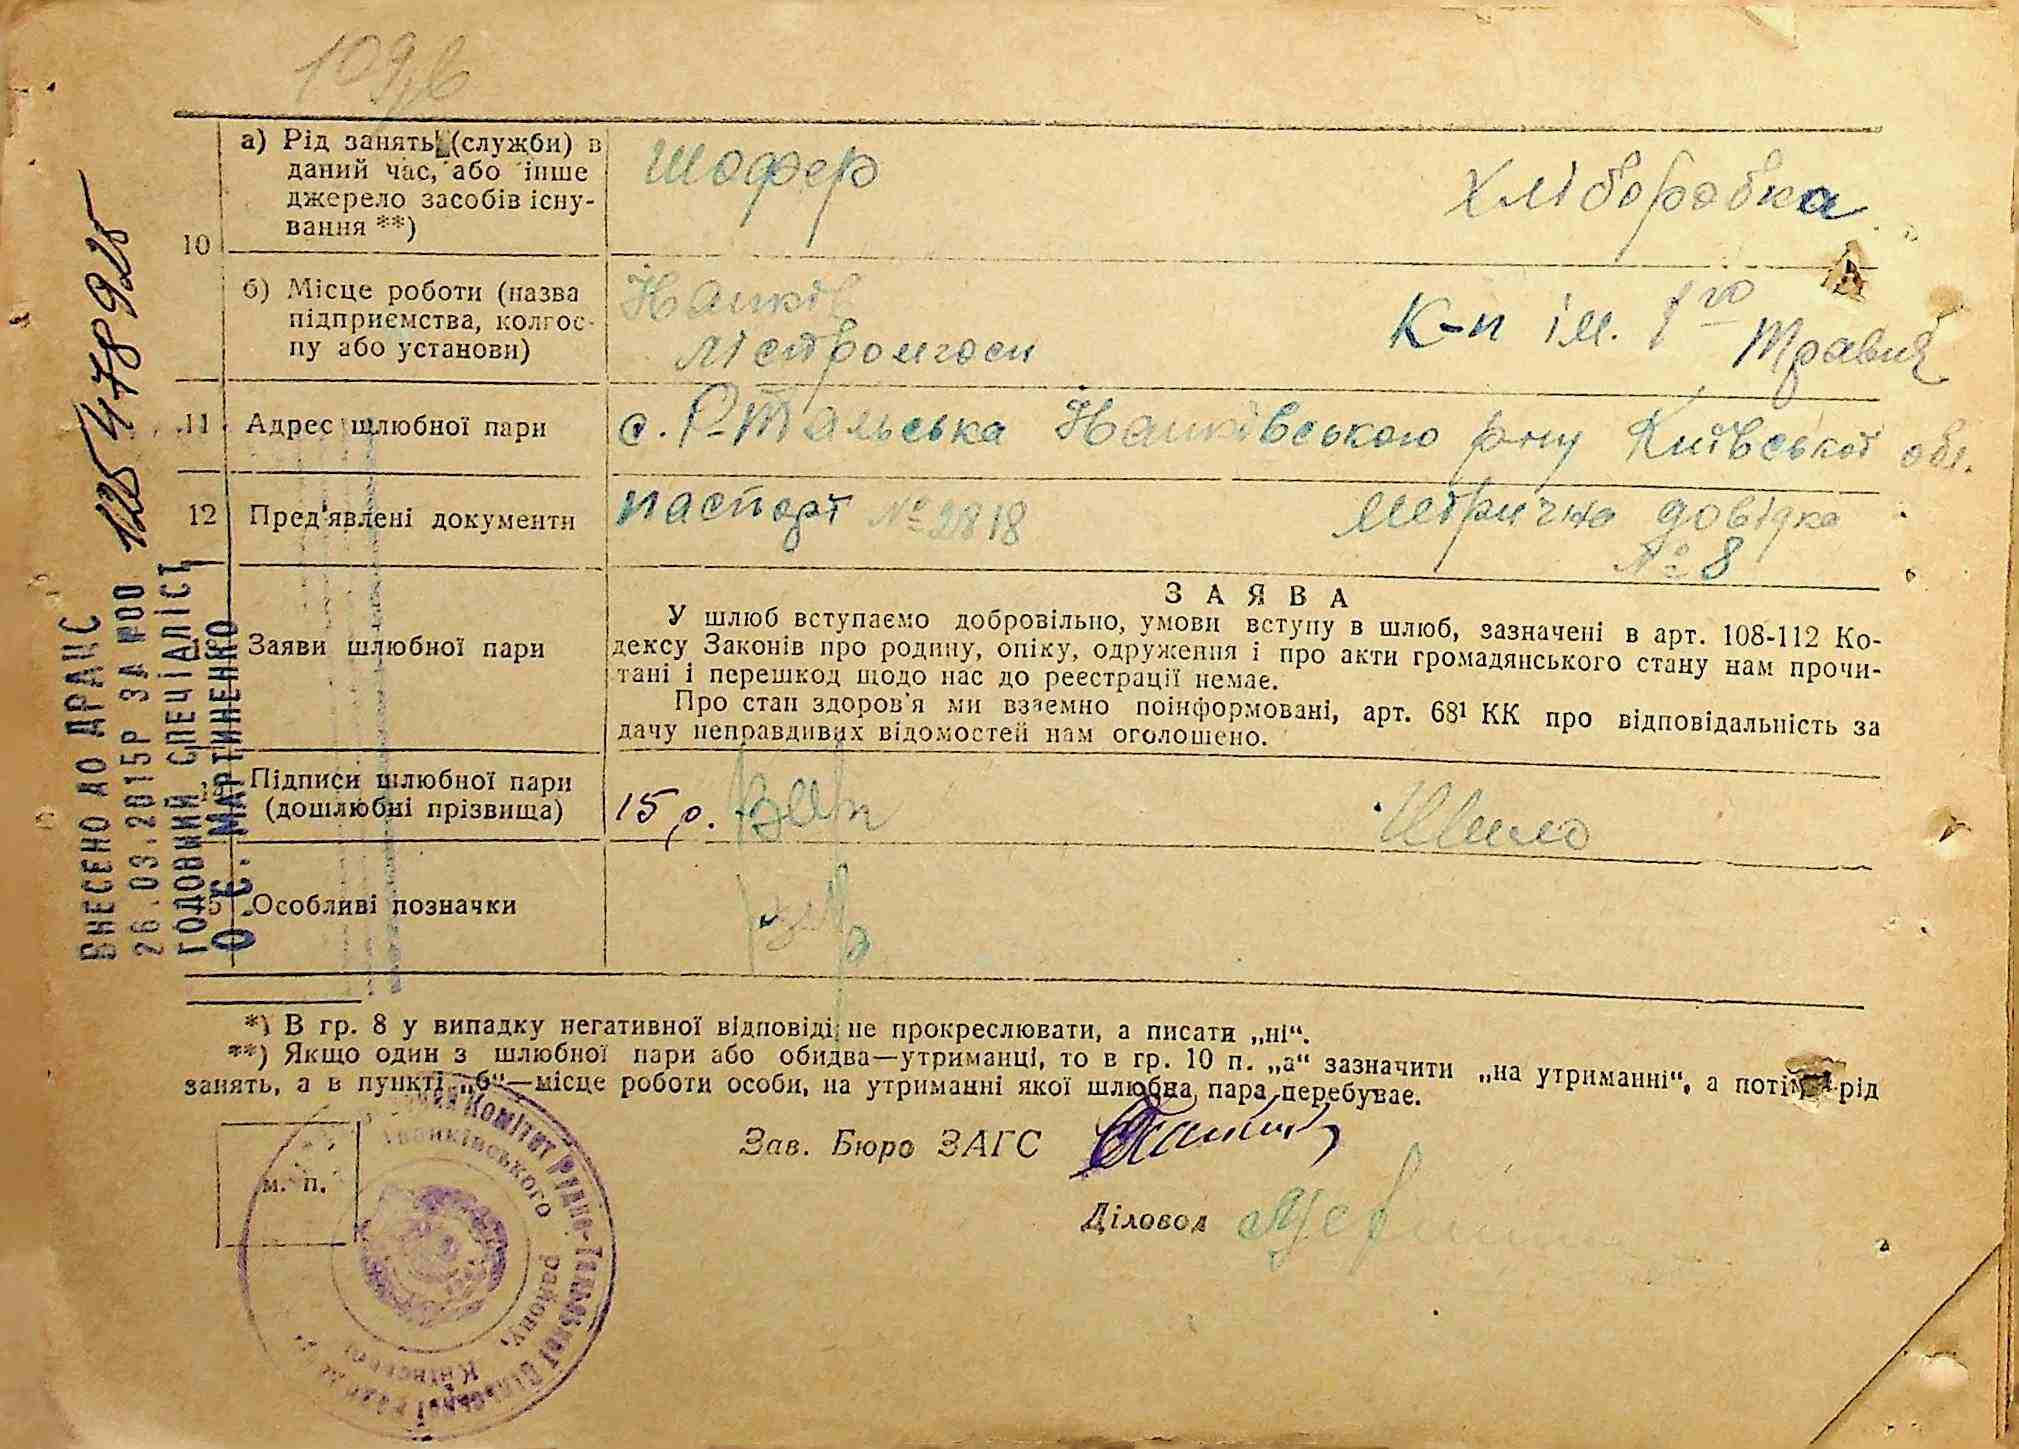 109 зв
10
а) Рід занять (службы) в
даний час, або інше
джерело засобів існу-
вання **)
шофер
хліборобка
б) Місце роботи (назва
підприємства, колгос-
пу або установи)
к-п ім. 1го
Травня
11
Адрес шлюбної пари
с. Р-Тальська Іванківського р-ну Київської обл.
12
Пред'явлені документи
паспорт № 2818
метрична довідка
№ 8
Заяви шлюбної пари
ЗАЯВА
У шлюб вступаємо добровільно, умови вступу в шлюб, зазначені в арт. 108-112 Ко-
дексу Законів про родину, опіку, одруження і про акти громадянського стану нам прочи-
тані і перешкод щодо нас до реєстрації немає.
Про стан здоров'я ми взаємно поінформовані, арт. 68¹ КК про відповідальність за
дачу неправдивих відомостей нам оголошено.
Підписи шлюбної пари
(дошлюбні прізвища)
15 р.
Шило
Особливі позначки
*) В гр. 8 у випадку негативної відповіді не прокреслювати, а писати „ні“.
**) Якщо один з шлюбної пари або обидва—утриманці, то в гр. 10 п. „а“ зазначити „на утриманні“, а потім рід
занять, а в пункті „б“—місце роботи особи, на утриманні якої шлюбна пара перебуває.
м. п.
Зав. Бюро ЗАГС
Діловод
Комітет Рудно-Тальської сільської ради
Іванківського району, Київської
ВНЕСЕНО ДО ДРАЦС
26.03.2015Р ЗА №00 125478925
ГОЛОВНИЙ СПЕЦІАЛІСТ
О.Є. МАРТИНЕНКО